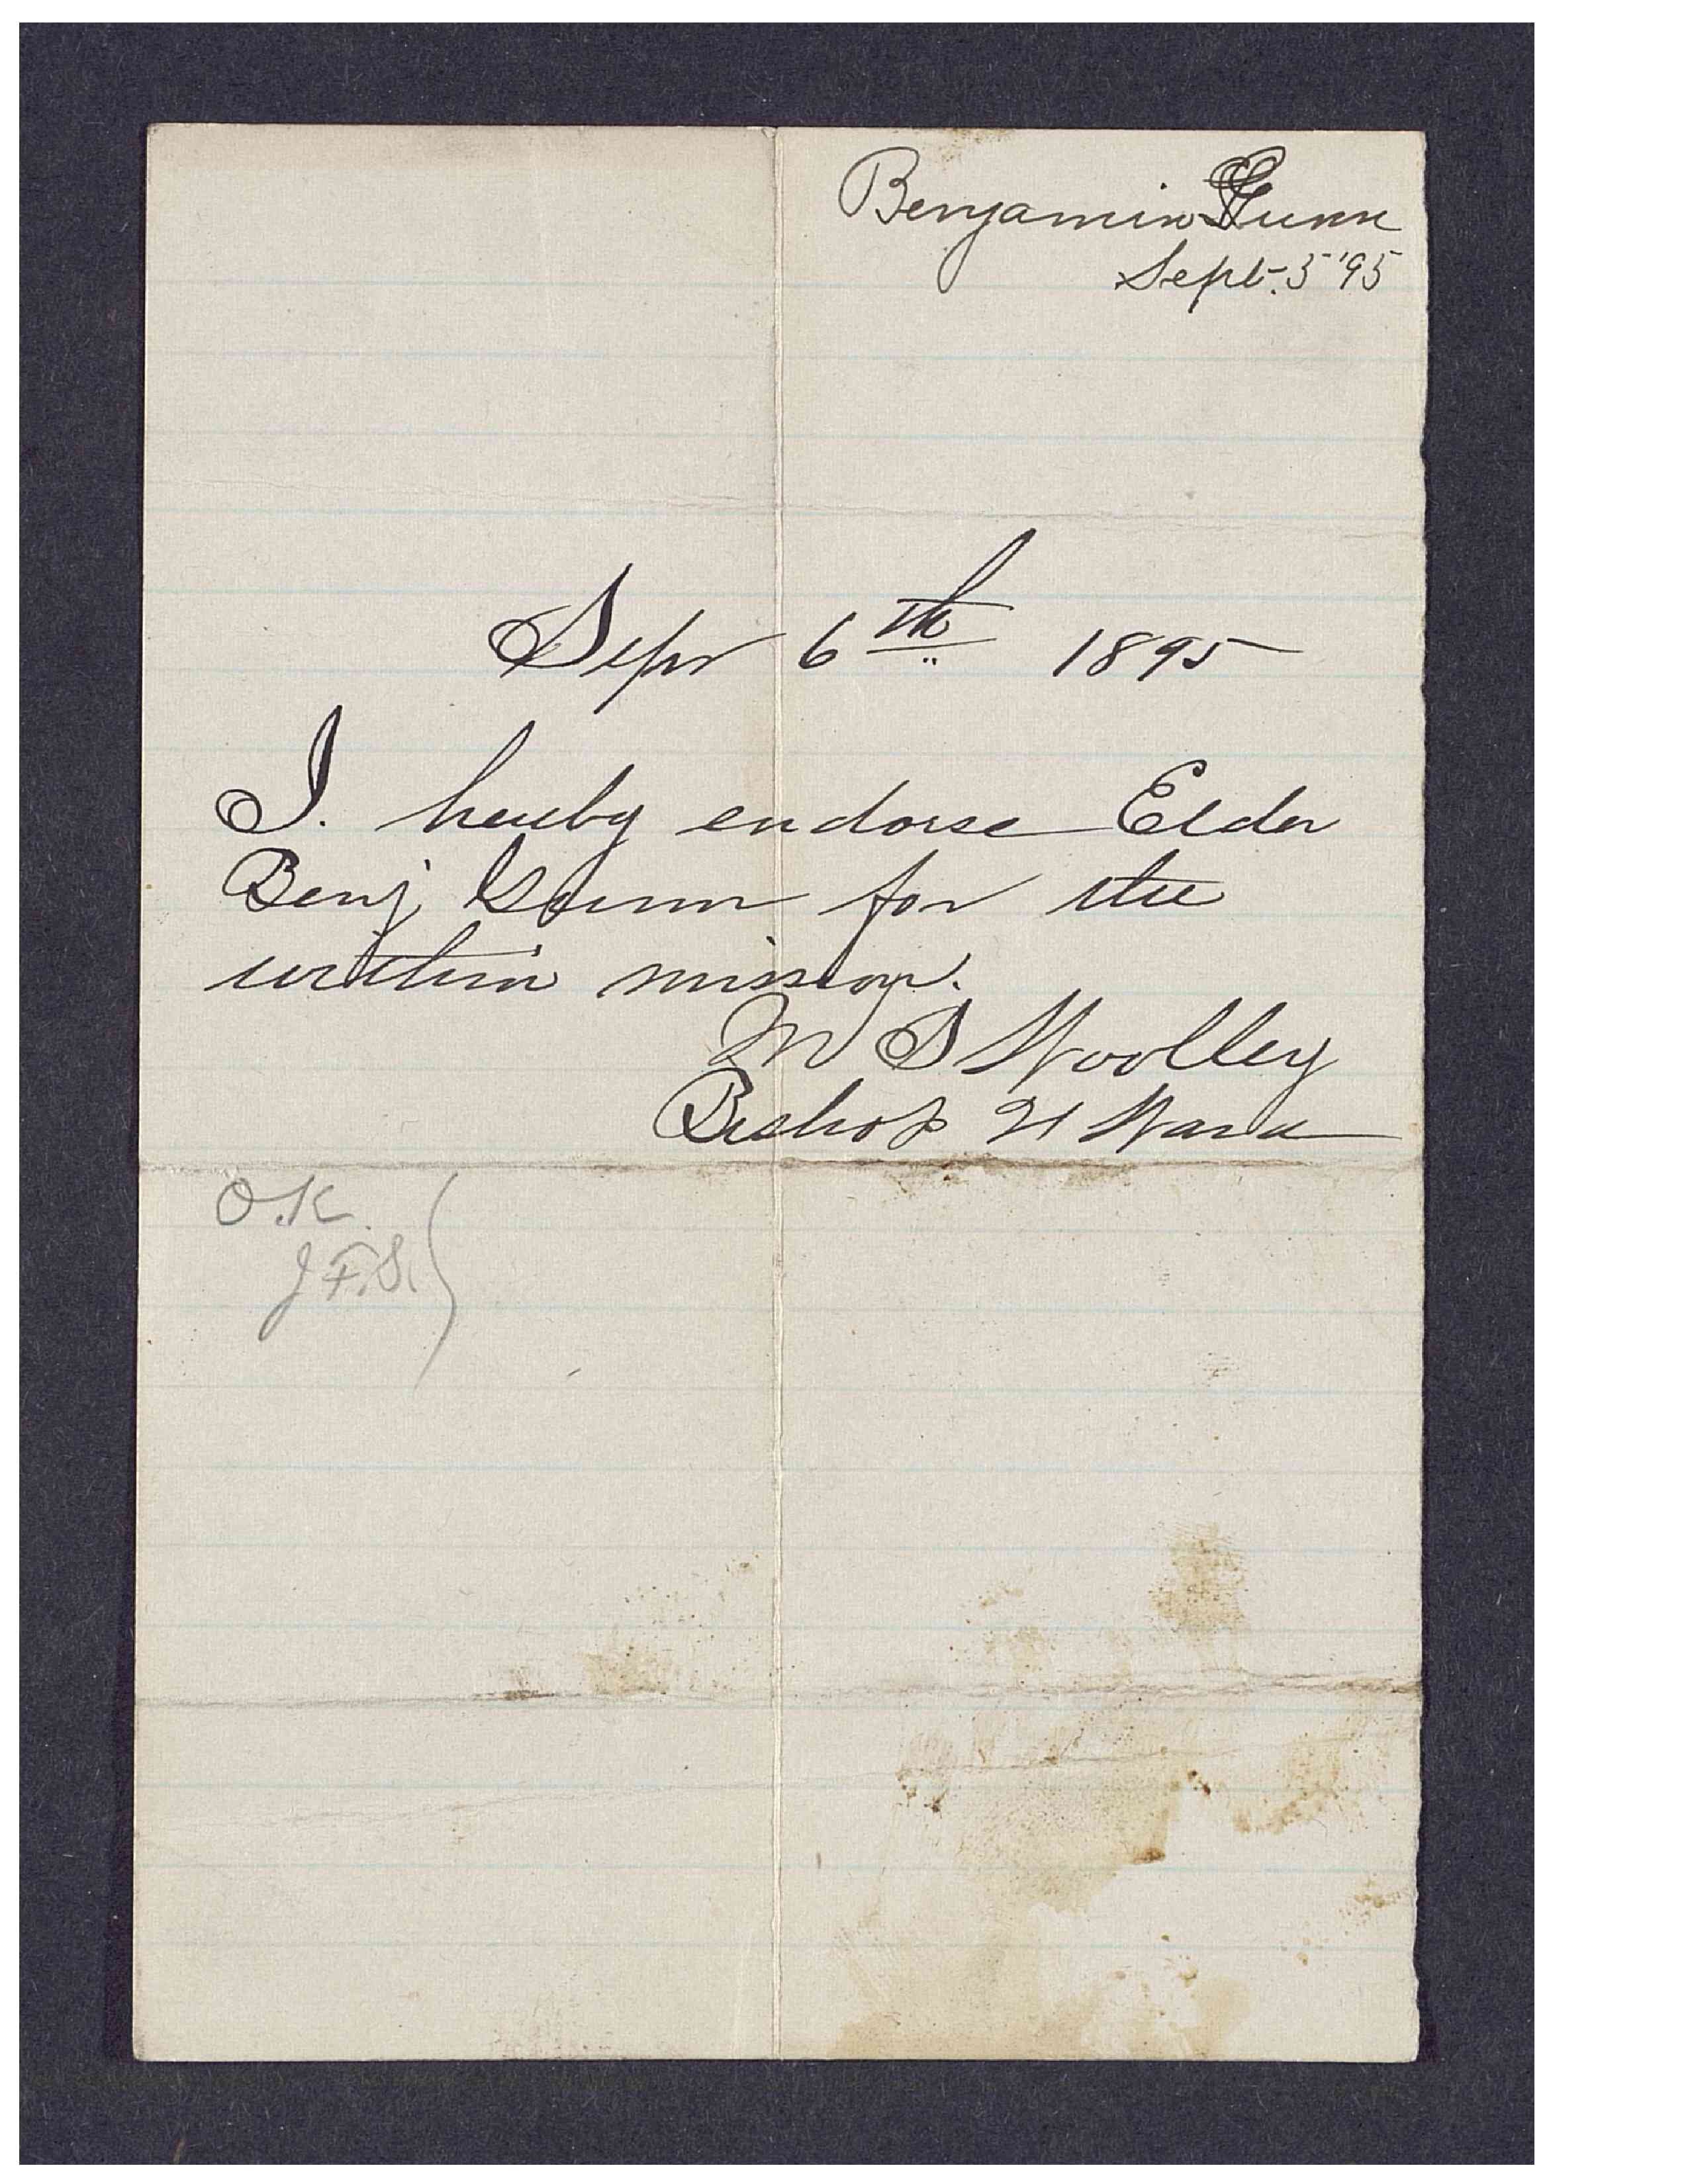 Benjamin Gunn
Sept. 5 '95
Sepr 6th 1895
I. hereby endorse Elder
Benj Gunn for the
within mission.
M S Woolley
Bishop 21 Ward
O.K.
J.F.S.